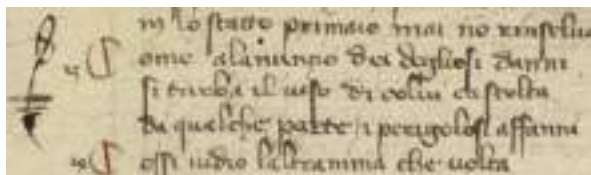 in lo stato primaio mai no rinselua
ome alanunpo dei dogliosi danni
si turba il uiso di colui cascolta
da qualche parte i perigolosi affanni
ossi uidio laltranima che uolta